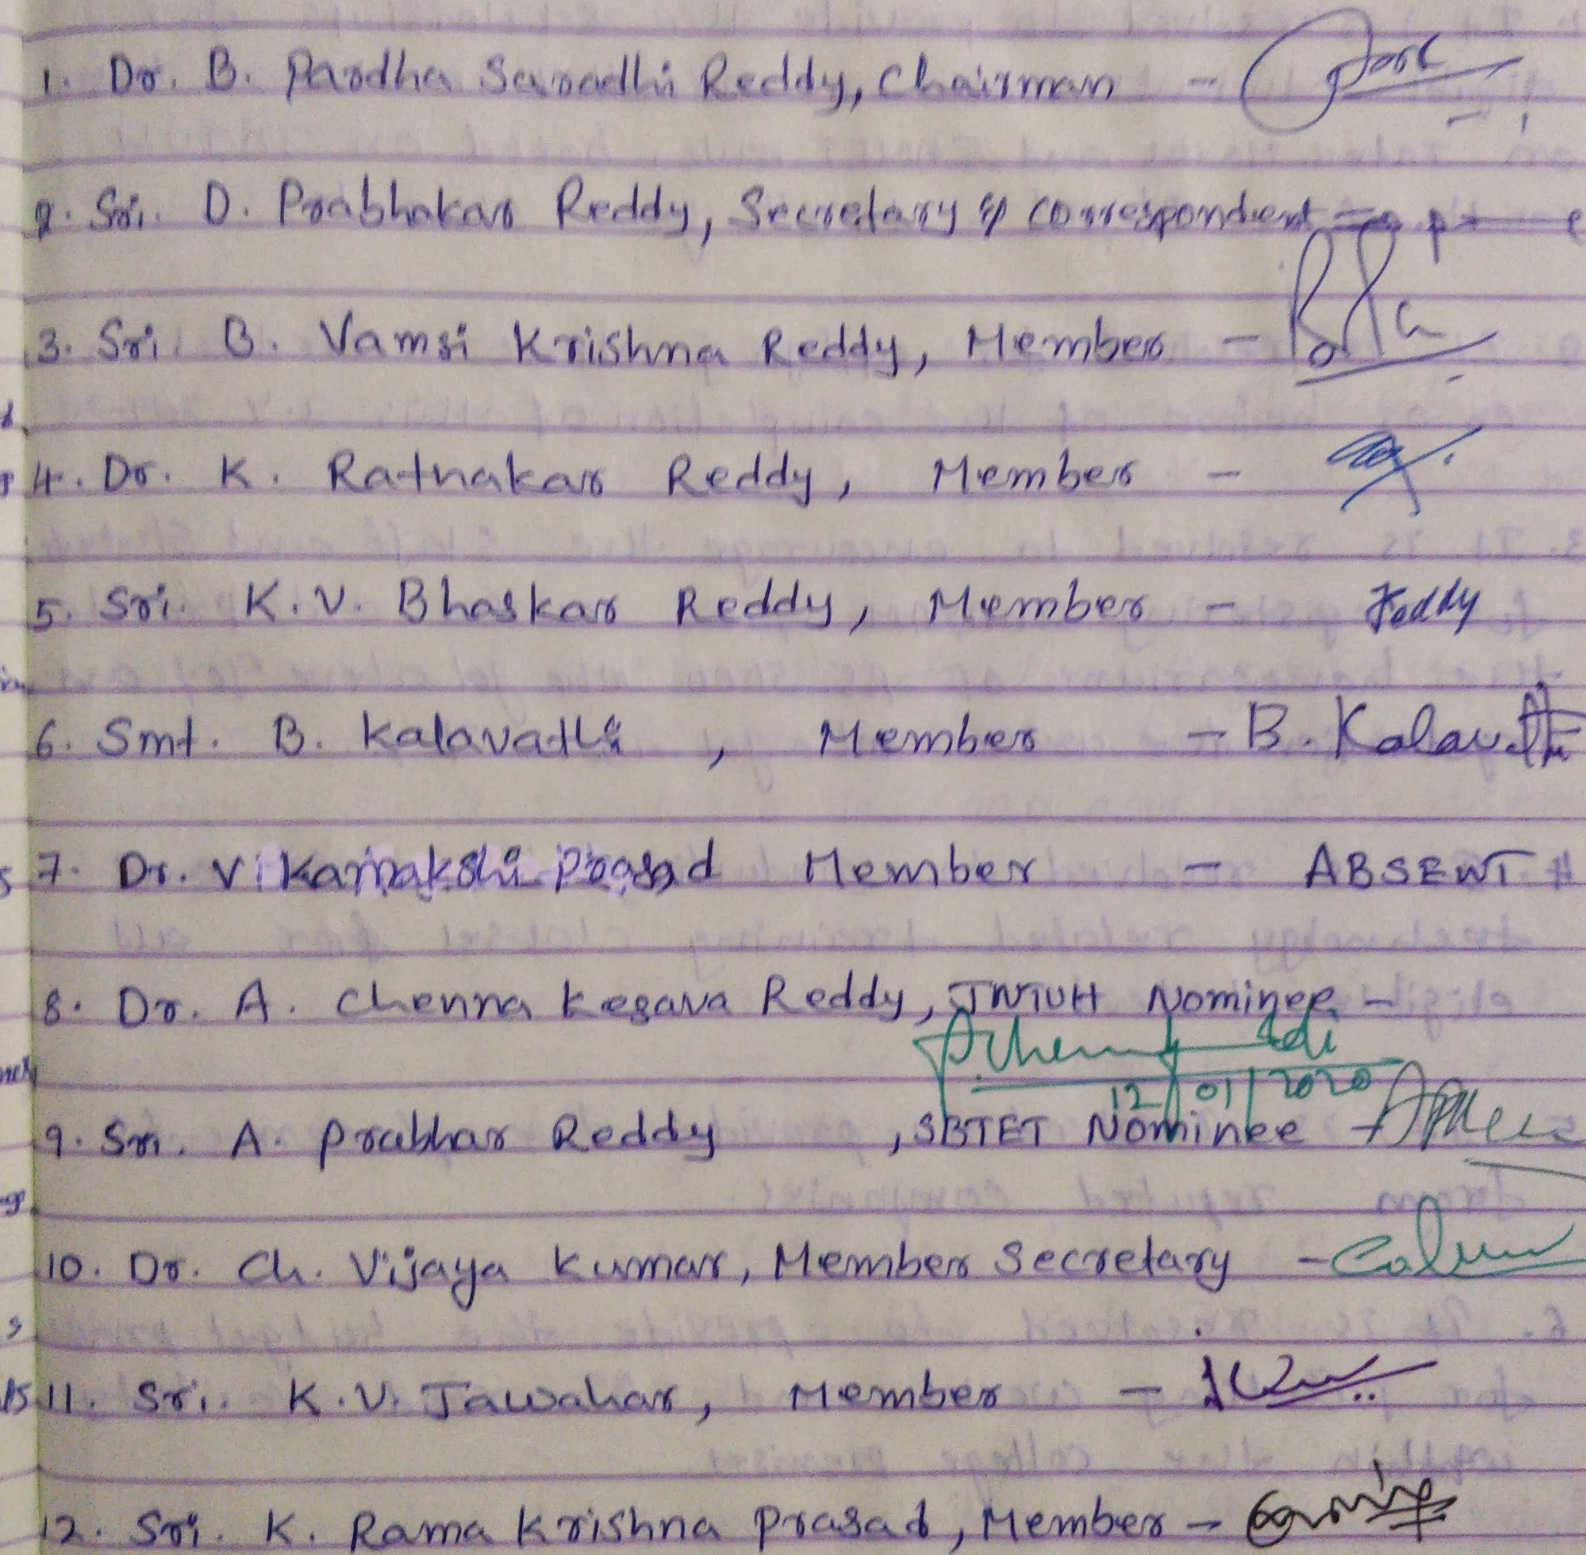 1. Dr. B. Pardha Saradhi Reddy, Chairman -
2. Sri. D. Prabhakar Reddy, Secretary & Correspondent -
3. Sri. B. Vamsi Krishna Reddy, Member -
4. Dr. K. Ratnakar Reddy, Member -
5. Sri. K.V. Bhaskar Reddy, Member - Reddy
6. Smt. B. Kalavathi , Member - B. Kalavathi
7. Dr. V. Kamakshi Prasad Member - ABSENT
8. Dr. A. Chenna Kesava Reddy, JNTUH Nominee -
12/01/2020
9. Sri. A. Prabhar Reddy , SBTET Nominee -
10. Dr. Ch. Vijaya Kumar, Member Secretary -
11. Sri. K.V. Jawahar, Member -
12. Sri. K. Rama Krishna Prasad, Member -